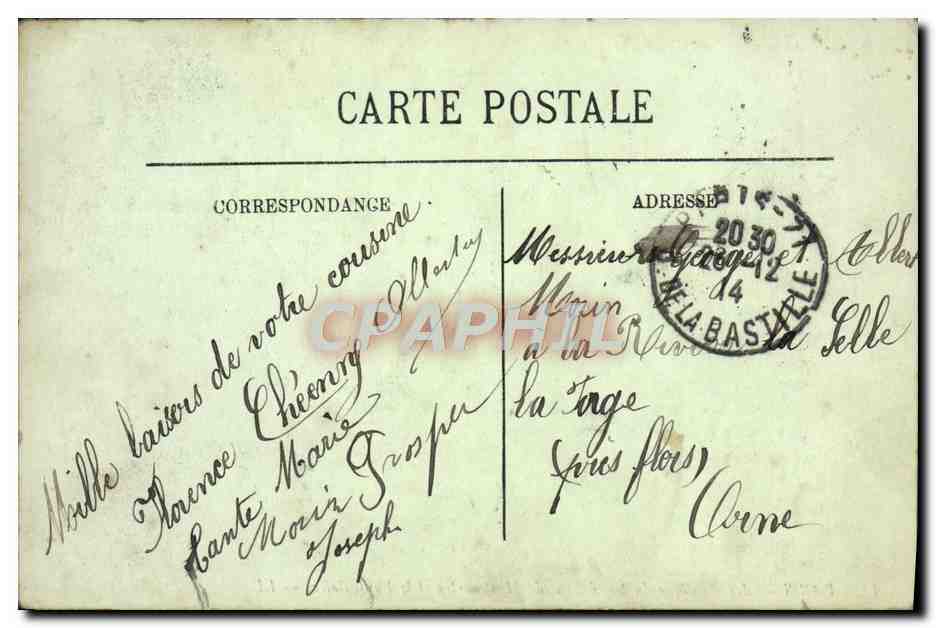 CARTE POSTALE
CORRESPONDANCE
Mille baisers de votre cousine
Florence
tante Marie
Morin Prosper
Joseph
CPAPHIL
ADRESSE
Messieurs Georges et Albert
Morin
à la la Selle
la Forge
(près flers)
Orne
PARIS
20 30
12
14
DE LA BASTILLE